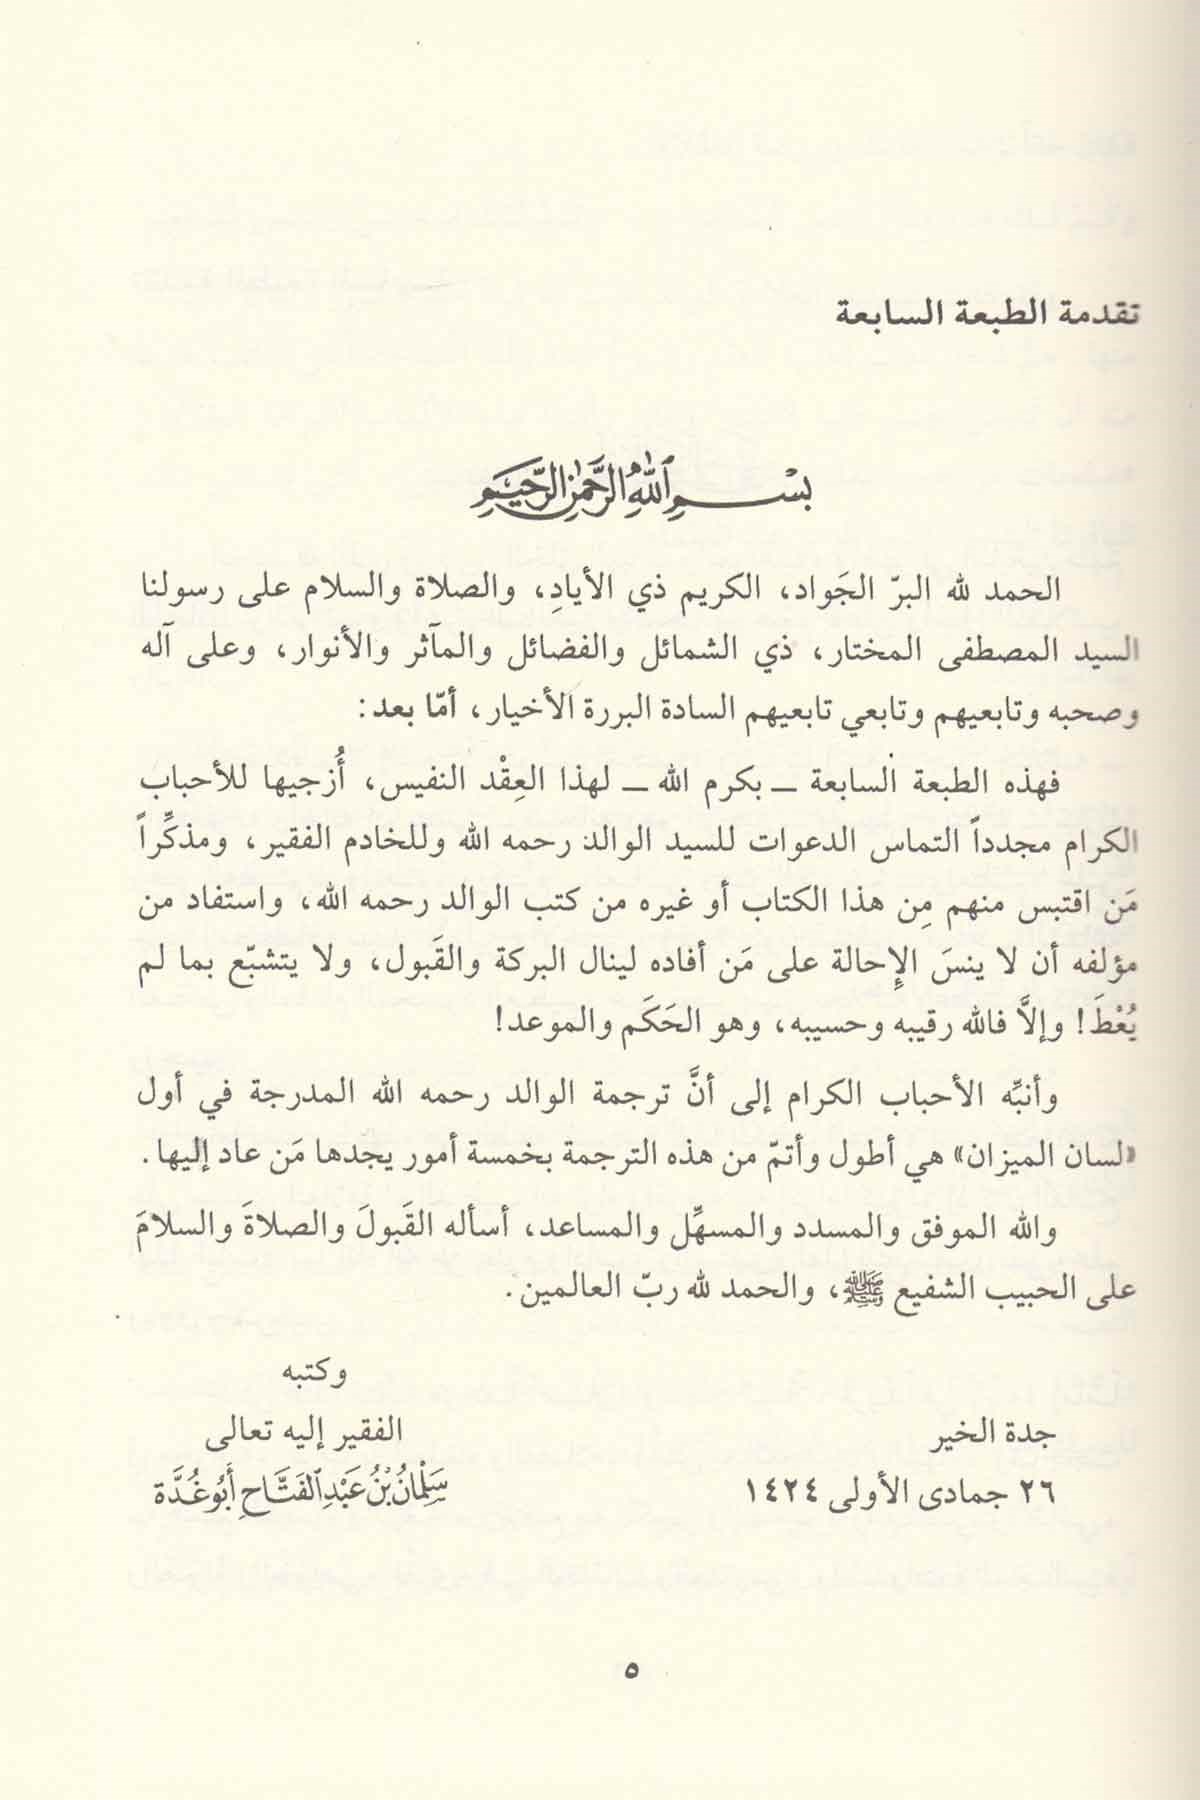 تقدمة الطبعة السابعة
بسم الله الرحمن الرحيم
الحمد لله البرّ الجَواد، الكريم ذي الأيادِ، والصلاة والسلام على رسولنا
السيد المصطفى المختار، ذي الشمائل والفضائل والمآثر والأنوار، وعلى آله
وصحبه وتابعيهم وتابعي تابعيهم السادة البررة الأخيار، أمّا بعد:
فهذه الطبعة السابعة ـ بكرم الله ـ لهذا العِقْد النفيس، أُزجيها للأحباب
الكرام مجدداً التماس الدعوات للسيد الوالد رحمه الله وللخادم الفقير، ومذكِّراً
مَن اقتبس منهم مِن هذا الكتاب أو غيره من كتب الوالد رحمه الله، واستفاد من
مؤلفه أن لا ينسَ الإِحالة على مَن أفاده لينال البركة والقَبول، ولا يتشبّع بما لم
يُعْطَ! وإلاَّ فالله رقيبه وحسيبه، وهو الحَكَم والموعد!
وأنبِّه الأحباب الكرام إلى أنَّ ترجمة الوالد رحمه الله المدرجة في أول
«لسان الميزان» هي أطول وأتمّ من هذه الترجمة بخمسة أمور يجدها مَن عاد إليها.
والله الموفق والمسدد والمسهِّل والمساعد، أسأله القَبولَ والصلاةَ والسلامَ
على الحبيب الشفيع ﷺ، والحمد لله ربّ العالمين.
وكتبه
جدة الخير الفقير إليه تعالى
٢٦ جمادى الأولى ١٤٢٤ سَلْمَانُ بْنُ عَبْدِ الفَتَّاحِ أَبُو غُدَّة
٥